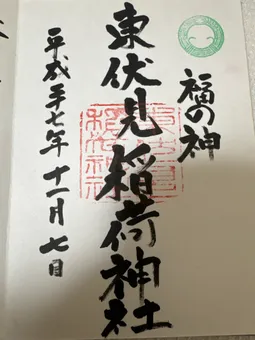 福の神
東伏見稲荷神社
平成廿七年十一月七日